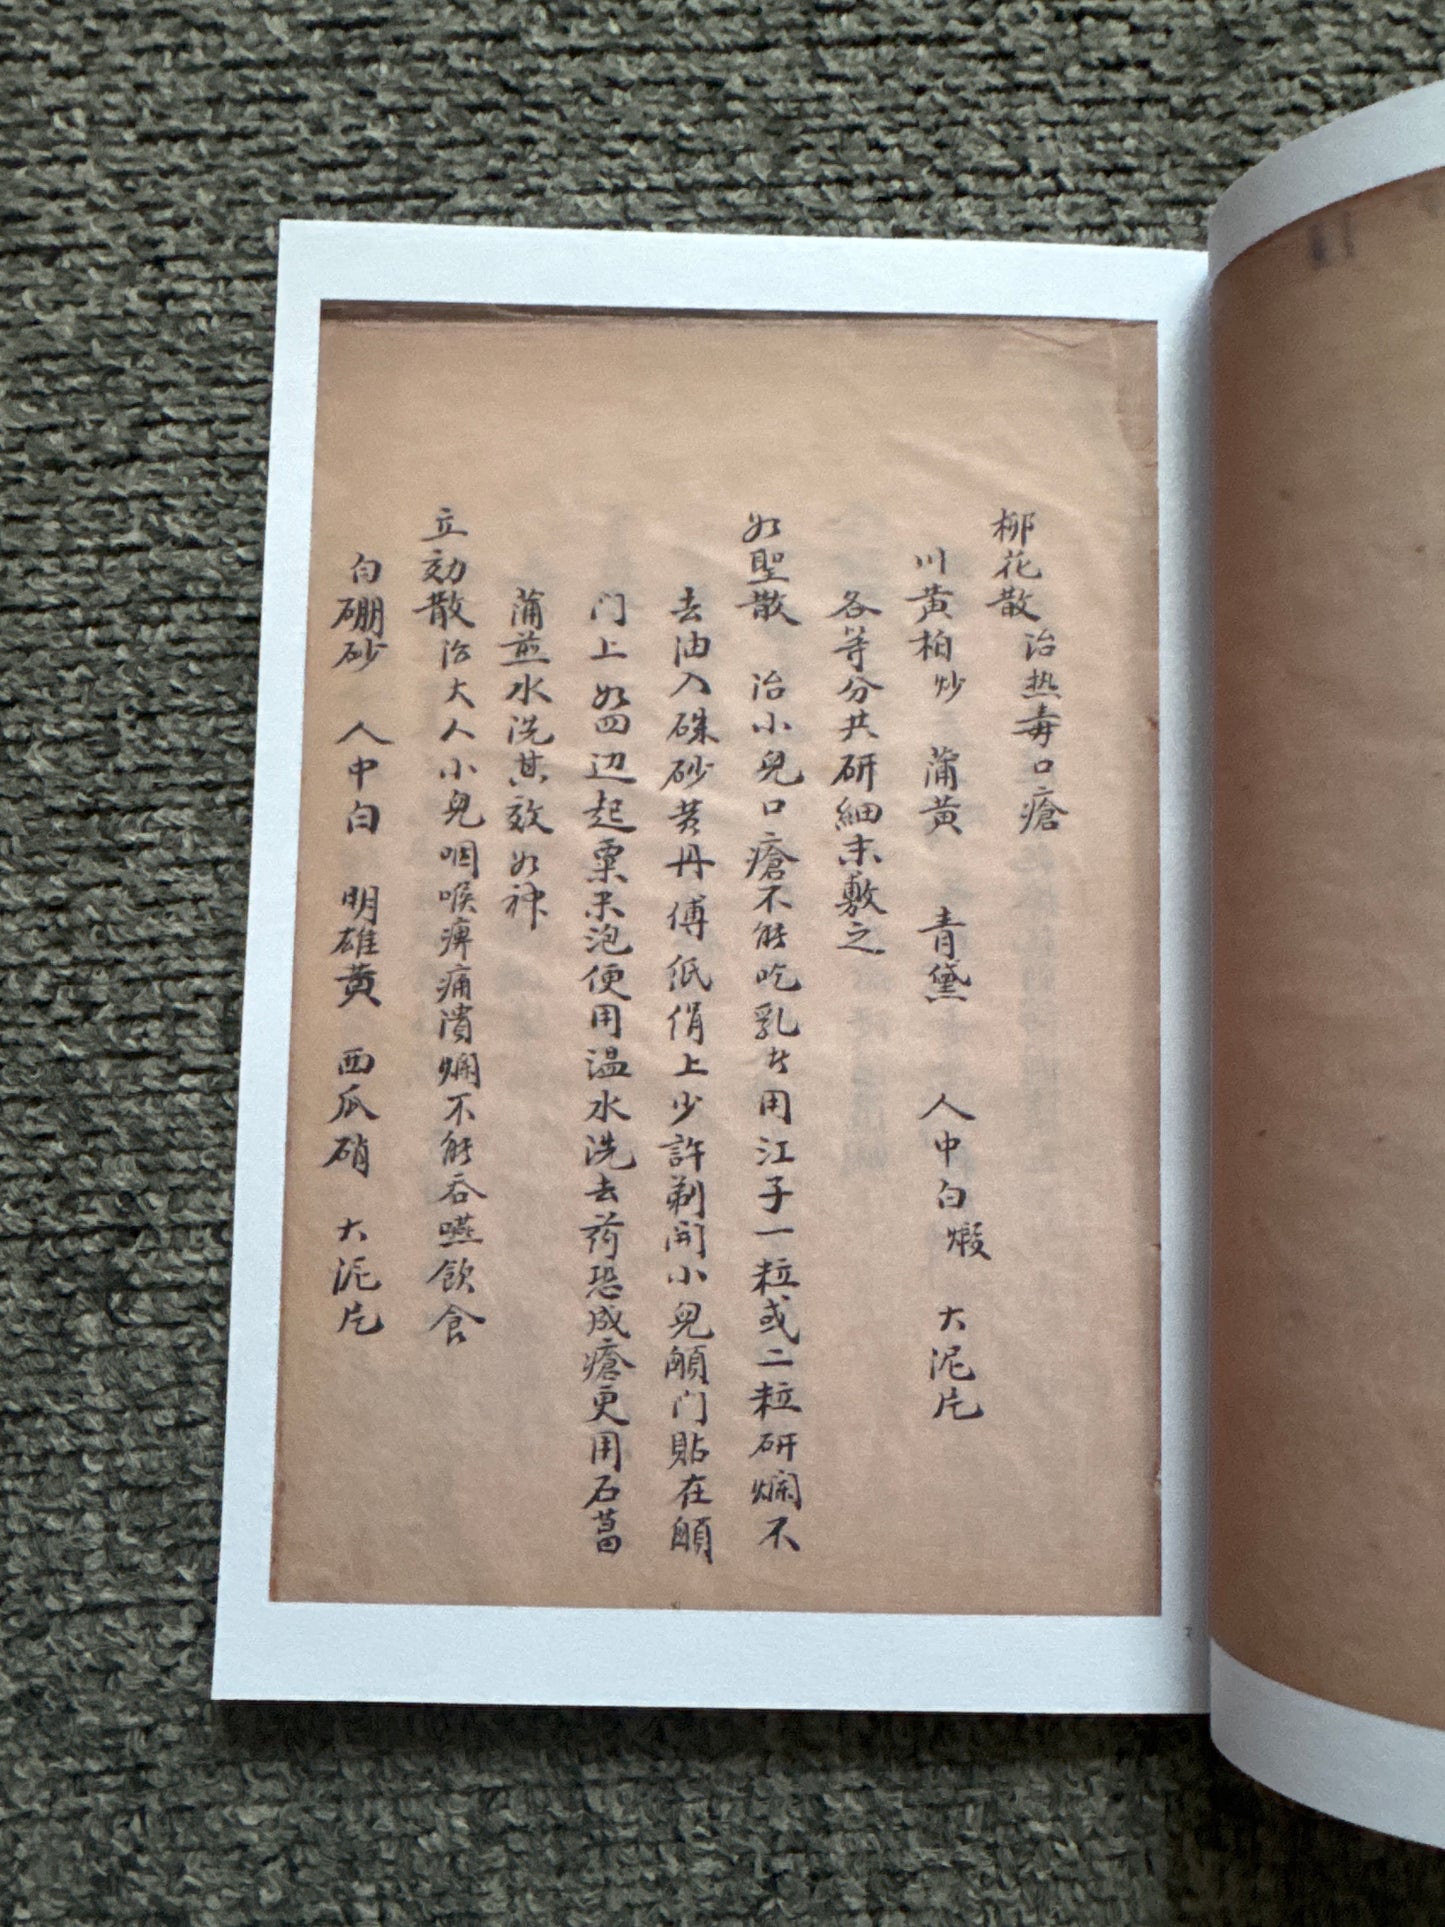 柳花散 治热毒口瘡
川黄柏炒 蒲黄 青黛 人中白煅 大泥片
各等分共研細末敷之
如聖散 治小兒口瘡不能吃乳者用江子一粒或二粒研爛不
去油入硃砂黄丹傅纸絹上少許剃開小兒顖门貼在顖
门上如四边起粟米泡便用温水洗去若恐成瘡更用石菖
蒲煎水洗其效如神
立効散 治大人小兒咽喉痺痛潰爛不能吞嚥飲食
白硼砂 人中白 明雄黄 西瓜硝 大泥片